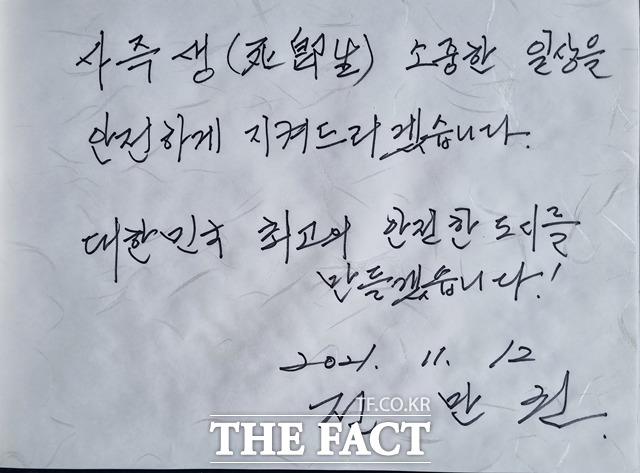 사즉생(死卽生) 소중한 일상을
안전하게 지켜드리겠습니다.
대한민국 최고의 안전한 도시를
만들겠습니다!
2021. 11. 12
전 만 권.
TF.CO.KR
THE FACT